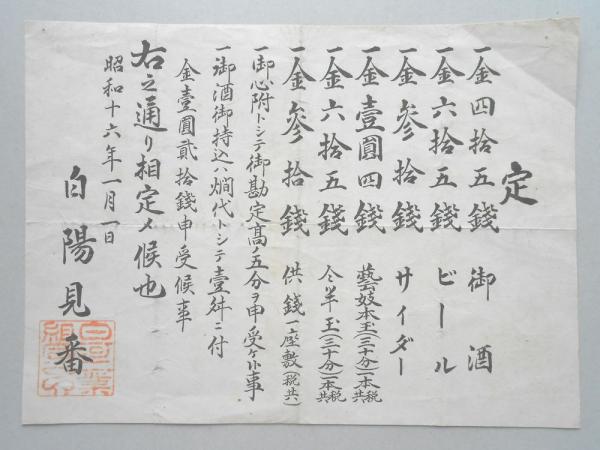 定
一金四拾五錢 御酒
一金六拾五錢 ビール
一金参拾錢 サイダー
一金壹圓四錢 藝妓本玉(三十分)一本税共
一金六拾五錢 仝半玉(三十分)一本税共
一金参拾錢 供錢一座敷(税共)
一御心附トシテ御勘定高ノ五分ヲ申受ケ候事
一御酒御持込ハ燗代トシテ壹舛ニ付
金壹圓貳拾錢申受候事
右之通り相定メ候也
昭和十六年一月一日
白陽見番